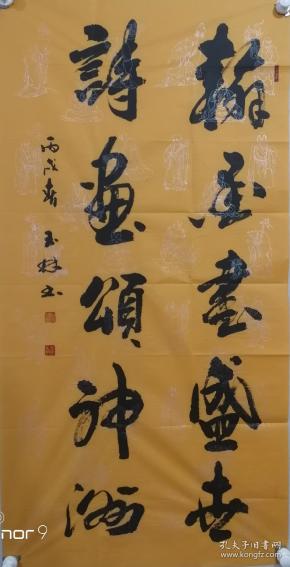 翰墨書盛世
詩畫頌神洲
丙戌春 玉林书
nor 9
孔夫子旧书网
www.kongfz.com